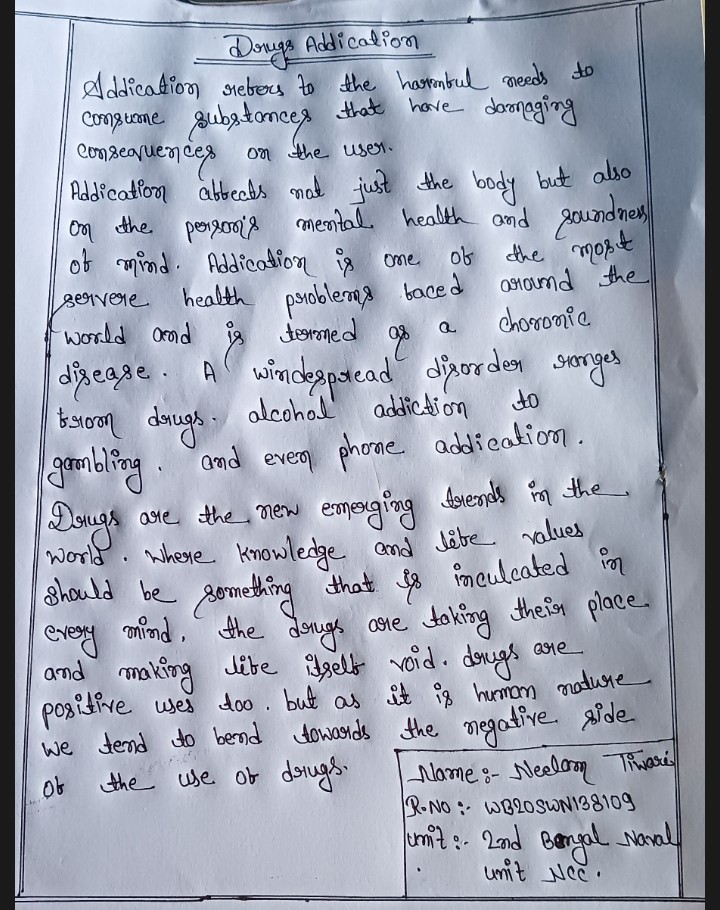 Drugs Addication
Addication refers to the harmful needs to
consume substances that have damaging
consequences on the user.
Addication affects not just the body but also
on the person's mental health and soundness
of mind. Addication is one of the most
servere health problems faced around the
world and is termed as a choronic
disease. A windespread disorder ranges
from drugs. alcohol addiction to
gambling. and even phone addication.
Drugs are the new emerging trends in the
world. where knowledge and life values
should be something that is inculcated in
every mind, the drugs are taking their place
and making life itself void. drugs are
positive uses too. but as it is human nature
we tend to bend towards the negative side
of the use of drugs.
Name:- Neelam Tiwari
R.NO:- WB20SWN138109
unit:- 2nd Bengal Naval
unit NCC.